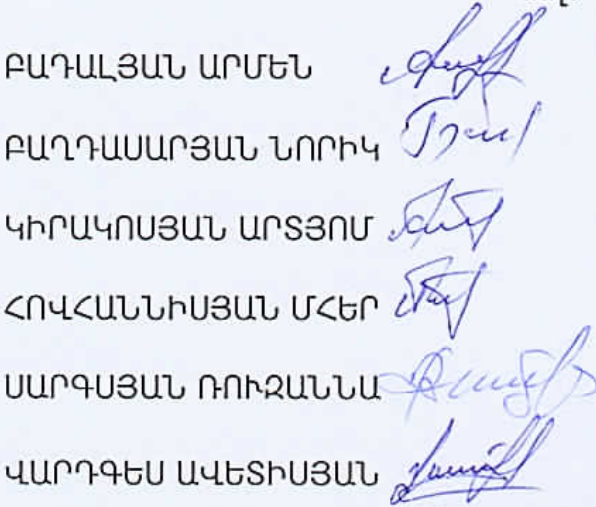 ԲԱԴԱԼՅԱՆ ԱՐՄԵՆ
ԲԱՂԴԱՍԱՐՅԱՆ ՆՈՐԻԿ
ԿԻՐԱԿՈՍՅԱՆ ԱՐՏՅՈՄ
ՀՈՎՀԱՆՆԻՍՅԱՆ ՄՀԵՐ
ՍԱՐԳՍՅԱՆ ՌՈՒԶԱՆՆԱ
ՎԱՐԴԳԵՍ ԱՎԵՏԻՍՅԱՆ